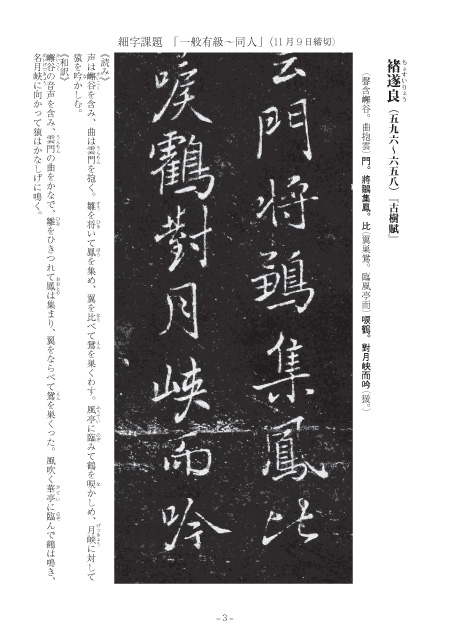 細字課題 「一般有級～同人」（11月９日締切）
褚遂良（五九六～六五八）『古樹賦』
ちょすいりょう
（聲含嶰谷。曲抱雲）門。將鶵集鳳。比（翼巢鴛。臨風亭而）唳鶴。對月峡而吟（猨。）
雲門将鶵集鳳比
唳鶴對月峡而吟
《読み》
声は嶰谷を含み、曲は雲門を抱く。雛を将いて鳳を集め、翼を比べて鴛を巣くわす。風亭に臨みて鶴を唳かしめ、月峡に対して
猿を吟かしむ。
《和訳》
嶰谷の音声を含み、雲門の曲をかなで、雛をひきつれて鳳は集まり、翼をならべて鴛を巣くった。風吹く華亭に臨んで鶴は鳴き、
名月峡に向かって猿はかなしげに鳴く。
－3－